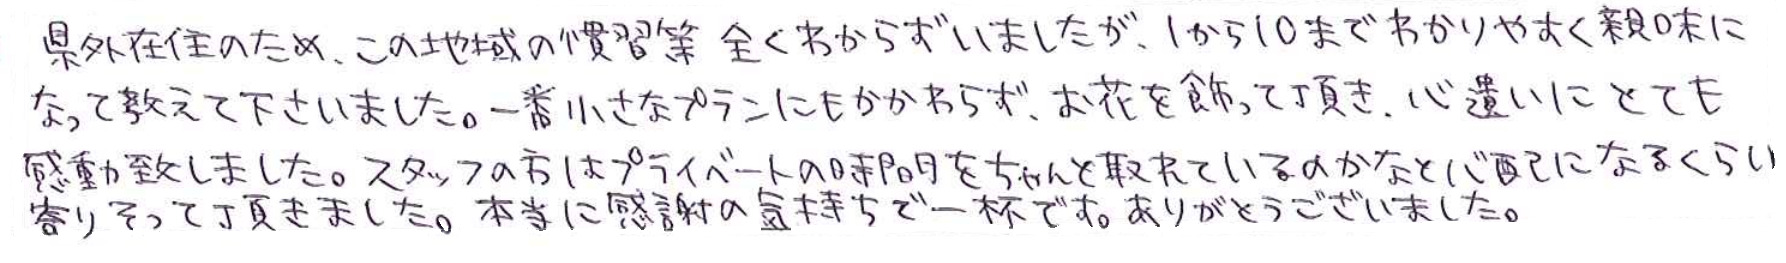 県外在住のため、この地域の慣習等 全くわからずいましたが、1から10までわかりやすく親味に
なって教えて下さいました。一番小さなプランにもかかわらず、お花を飾って頂き、心遣いにとても
感動致しました。スタッフの方はプライベートの時間をちゃんと取れているのかなと心配になるくらい
寄りそって頂きました。本当に感謝の気持ちで一杯です。ありがとうございました。